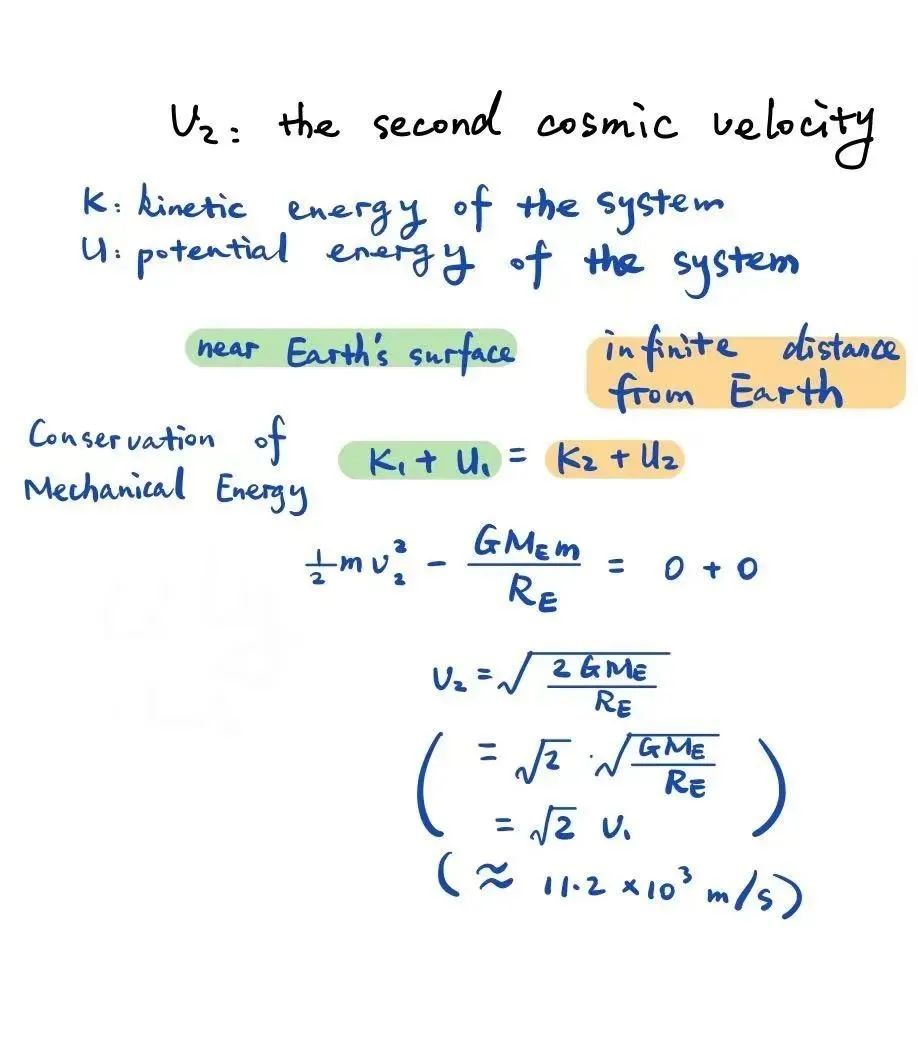 v₂: the second cosmic velocity
K: kinetic energy of the system
U: potential energy of the system
near Earth's surface
infinite distance
from Earth
Conservation of
Mechanical Energy
K₁ + U₁ = K₂ + U₂
½mv₂² - GM_E m / R_E = 0 + 0
v₂ = √(2GM_E / R_E)
( = √2 · √(GM_E / R_E)
= √2 v₁ )
(≈ 11.2 × 10³ m/s)